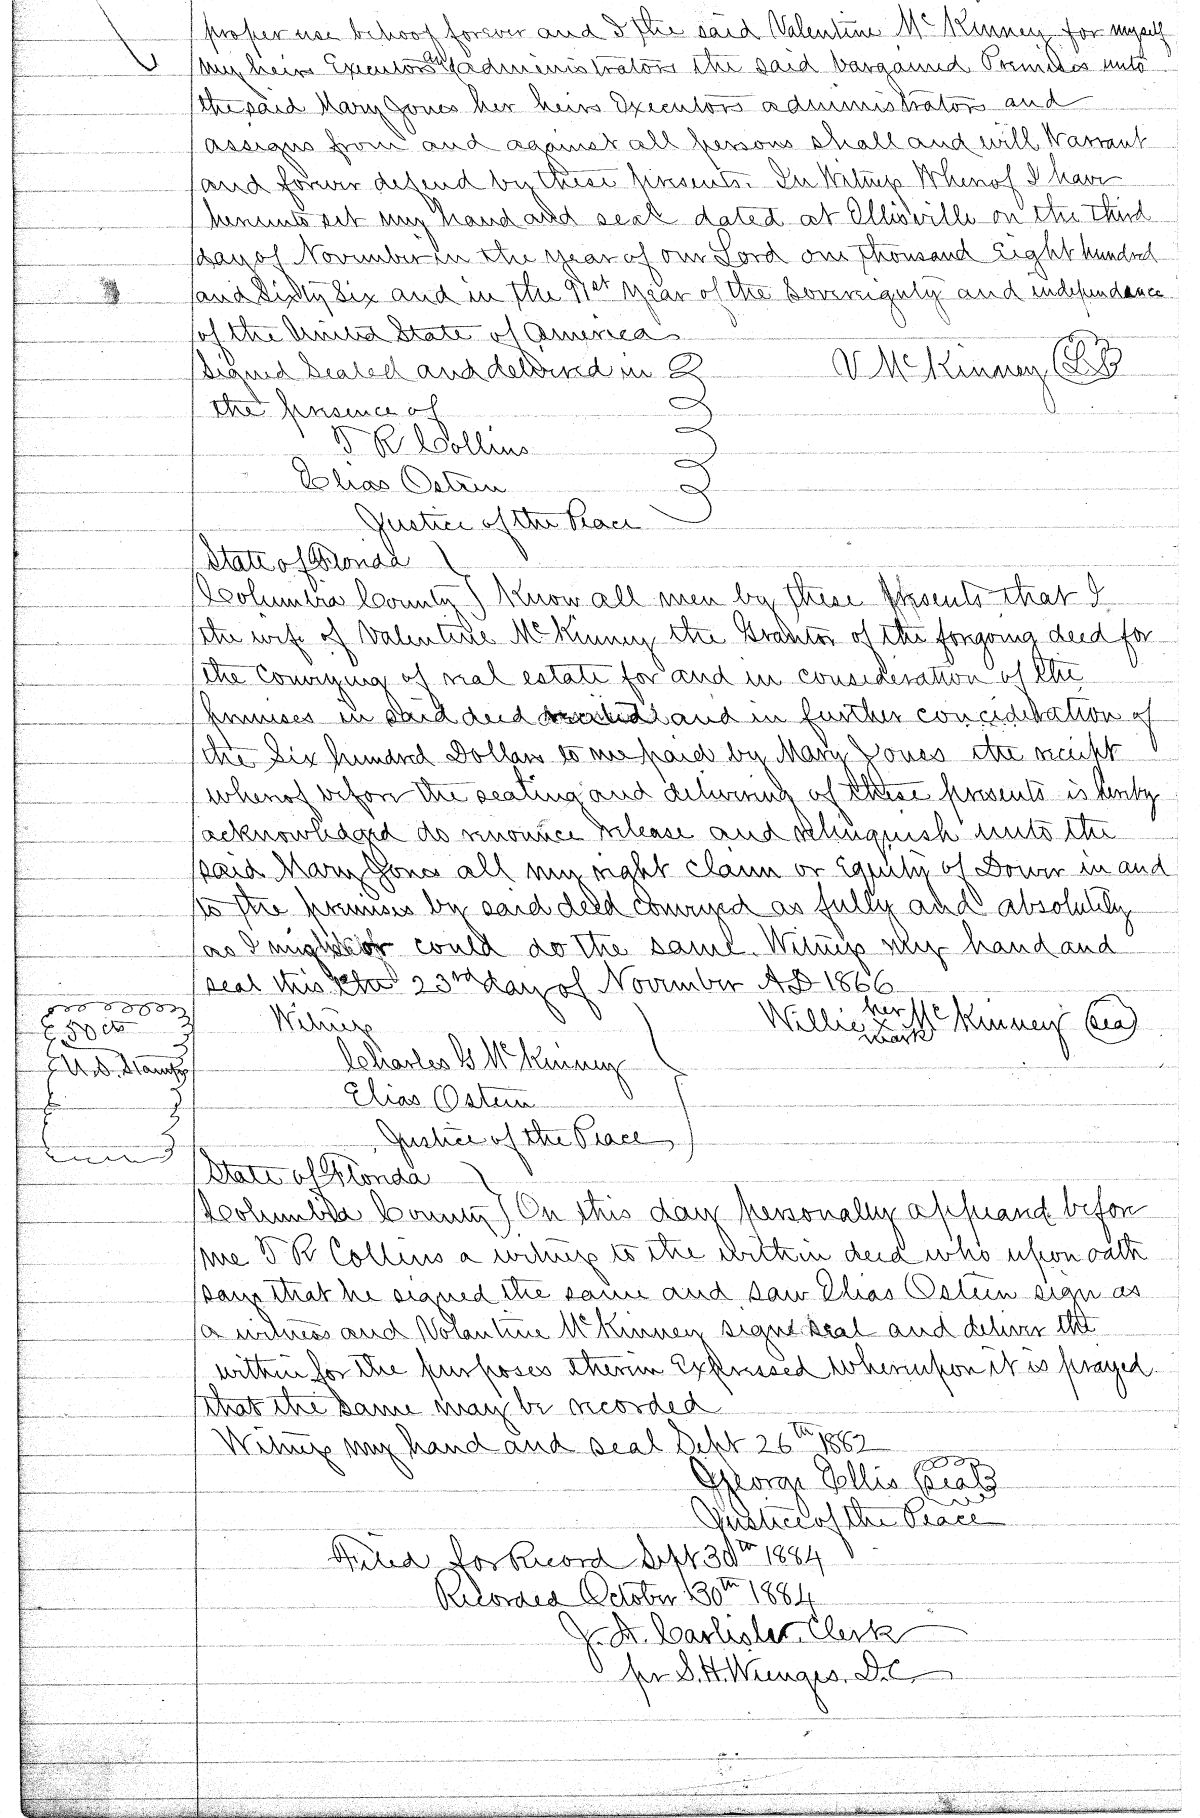 proper use behoof forever and I the said Valentine McKinney for myself
my heirs Executors and administrators the said bargained Premises unto
the said Mary Jones her heirs Executors administrators and
assigns from and against all persons shall and will Warrant
and forever defend by these presents. In Witness Whereof I have
hereunto set my hand and seal dated at Ellisville on the third
day of November in the year of our Lord one thousand Eight hundred
and Sixty Six and in the 91st year of the Sovereignty and independance
of the United State of America
Signed Sealed and delivered in
V McKinney
the presence of
T R Collins
Elias Osteen
Justice of the Peace
State of Florida
Columbia County } Know all men by these presents that I
the wife of Valentine McKinney the Grantor of the forgoing deed for
the Conveying of real estate for and in consideration of the
premises in said deed recited and in further concideration of
the Six hundred Dollars to me paid by Mary Jones the receipt
whereof before the sealing and delivering of these presents is hereby
acknowledged do renounce release and relinquish unto the
said Mary Jones all my right claim or Equity of Dower in and
to the premises by said deed conveyed as fully and absolutely
as I might or could do the same. Witness my hand and
seal this the 23rd day of November AD 1866
Witness
Willie her x mark McKinney (seal)
50 cts
U.S. Stamp
Charles G McKinney
Elias Osteen
Justice of the Peace
State of Florida
Columbia County } On this day personally appeared before
me T R Collins a witness to the within deed who upon oath
says that he signed the same and saw Elias Osteen sign as
a witness and Volantine McKinney signe seal and deliver the
within for the purposes therein Expressed whereupon it is prayed
that the same may be recorded
Witness my hand and seal Sept 26th 1882
George Ellis (seal)
Justice of the Peace
Filed for Record Sept 30th 1884
Recorded October 30th 1884
Clerk
pr S. H. D.C.